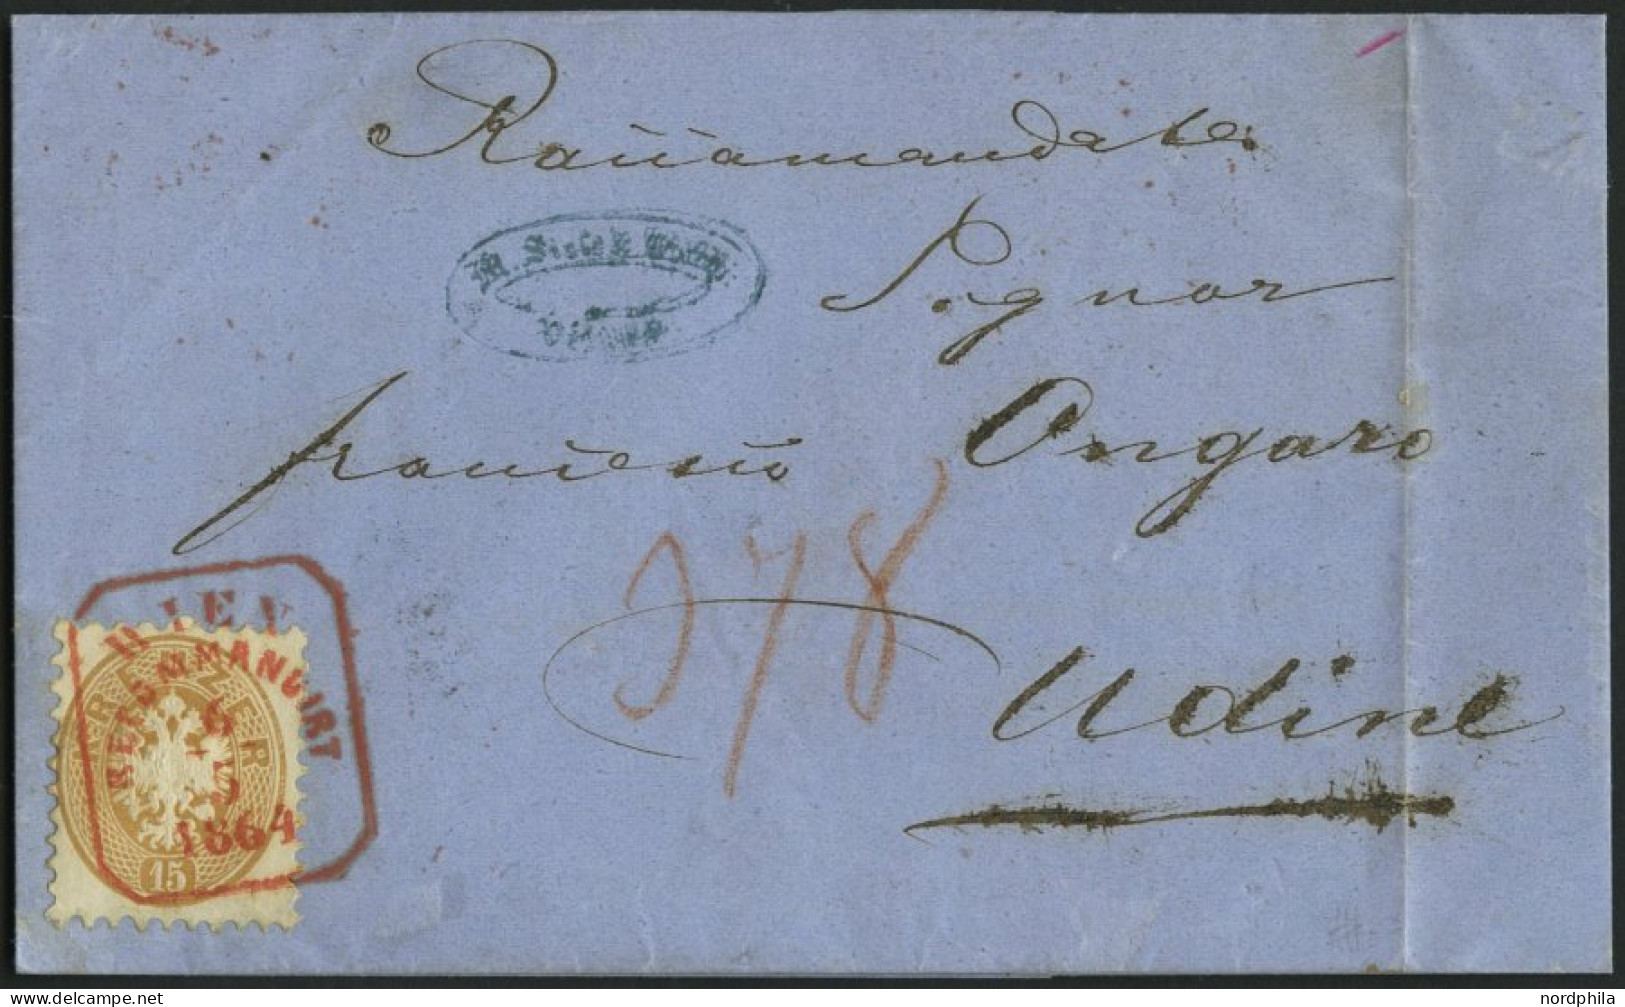 Raccomandata.
Signor
francesco Ongaro
378
Udine
WIEN
RECOMMANDIRT
6
5
1864
KREUZER
15
delcampe.net
nordphila